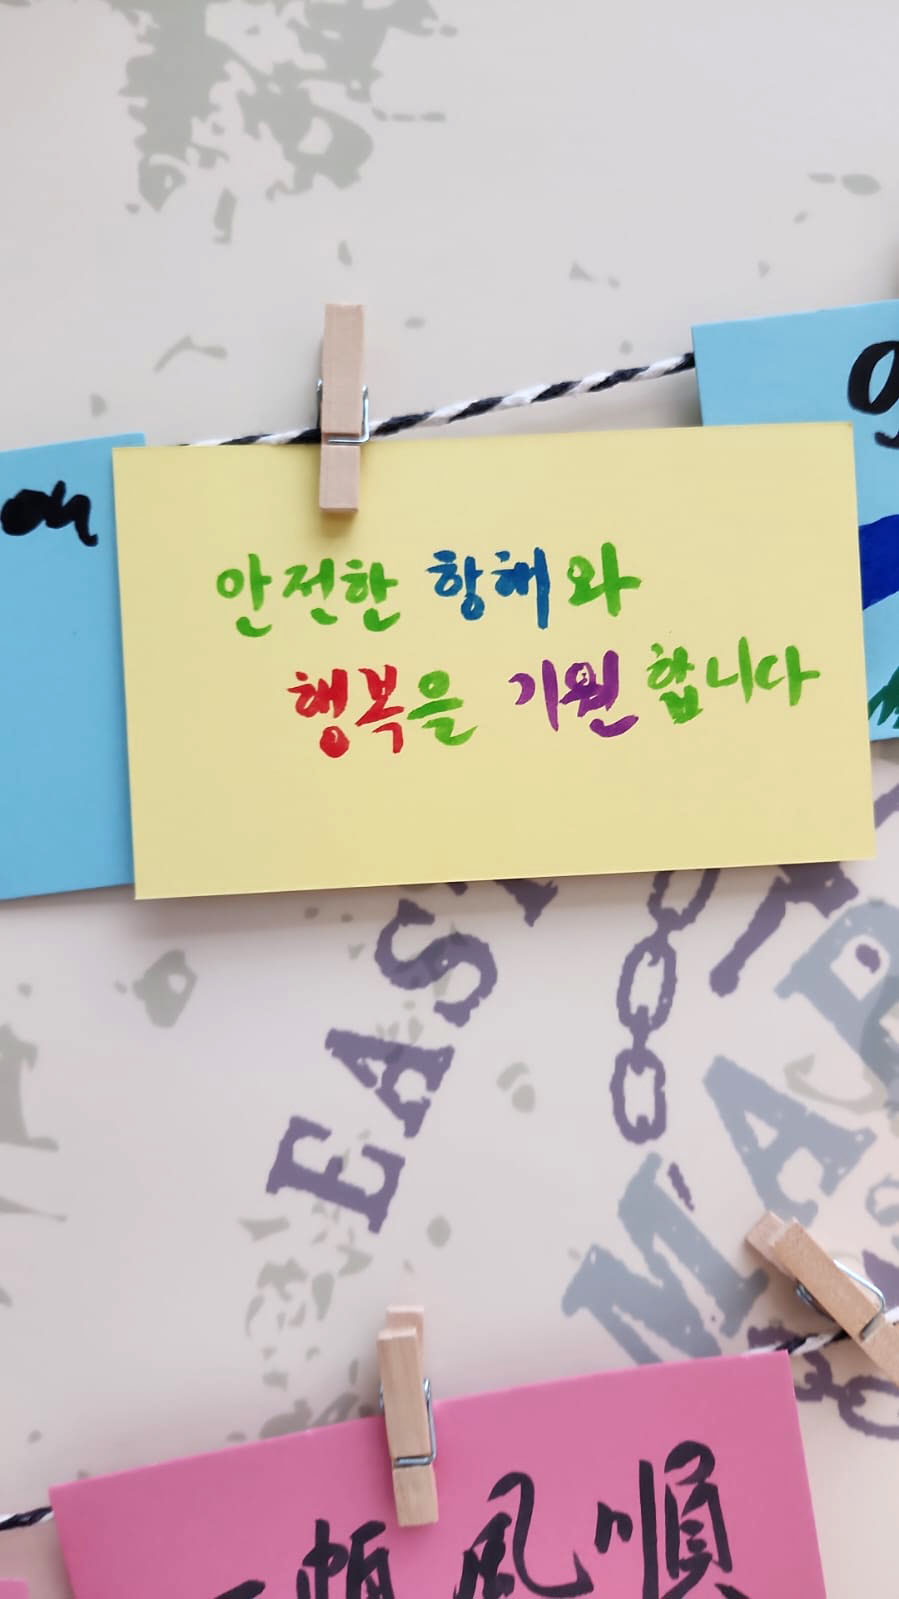 안전한 항해와
행복을 기원합니다
EAST
MAR
帆風順